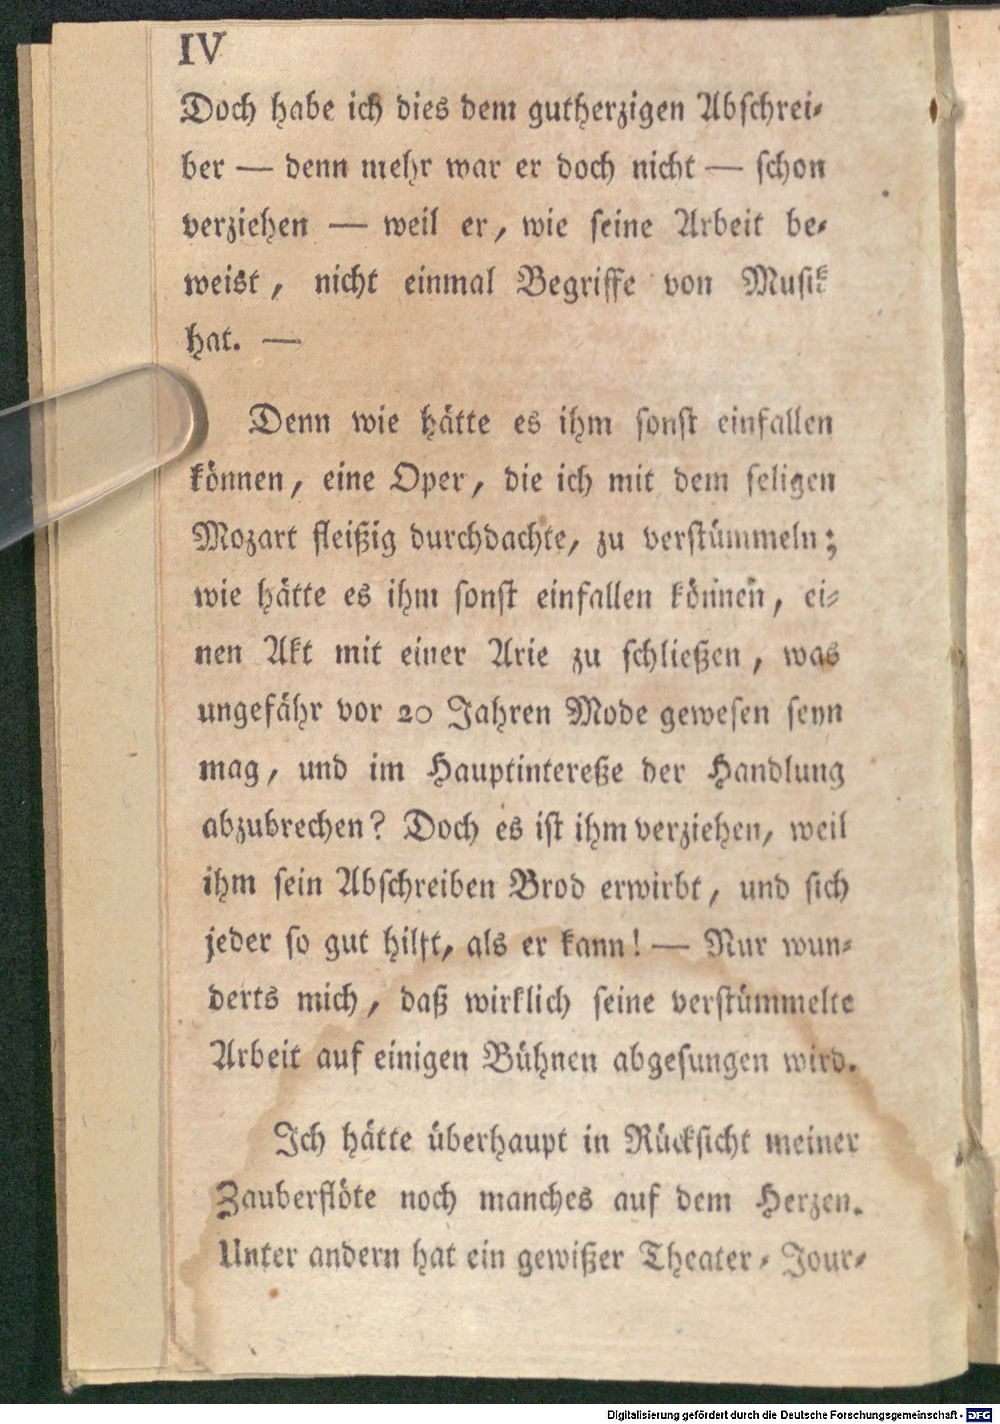 IV
Doch habe ich dies dem gutherzigen Abschrei⸗
ber — denn mehr war er doch nicht — schon
verziehen — weil er, wie seine Arbeit be⸗
weist, nicht einmal Begriffe von Musik
hat. —
Denn wie hätte es ihm sonst einfallen
können, eine Oper, die ich mit dem seligen
Mozart fleißig durchdachte, zu verstümmeln;
wie hätte es ihm sonst einfallen können, ei⸗
nen Akt mit einer Arie zu schließen, was
ungefähr vor 20 Jahren Mode gewesen seyn
mag, und im Hauptintereße der Handlung
abzubrechen? Doch es ist ihm verziehen, weil
ihm sein Abschreiben Brod erwirbt, und sich
jeder so gut hilft, als er kann! — Nur wun⸗
derts mich, daß wirklich seine verstümmelte
Arbeit auf einigen Bühnen abgesungen wird.
Ich hätte überhaupt in Rücksicht meiner
Zauberflöte noch manches auf dem Herzen.
Unter andern hat ein gewißer Theater⸗Jour⸗
Digitalisierung gefördert durch die Deutsche Forschungsgemeinschaft - DFG